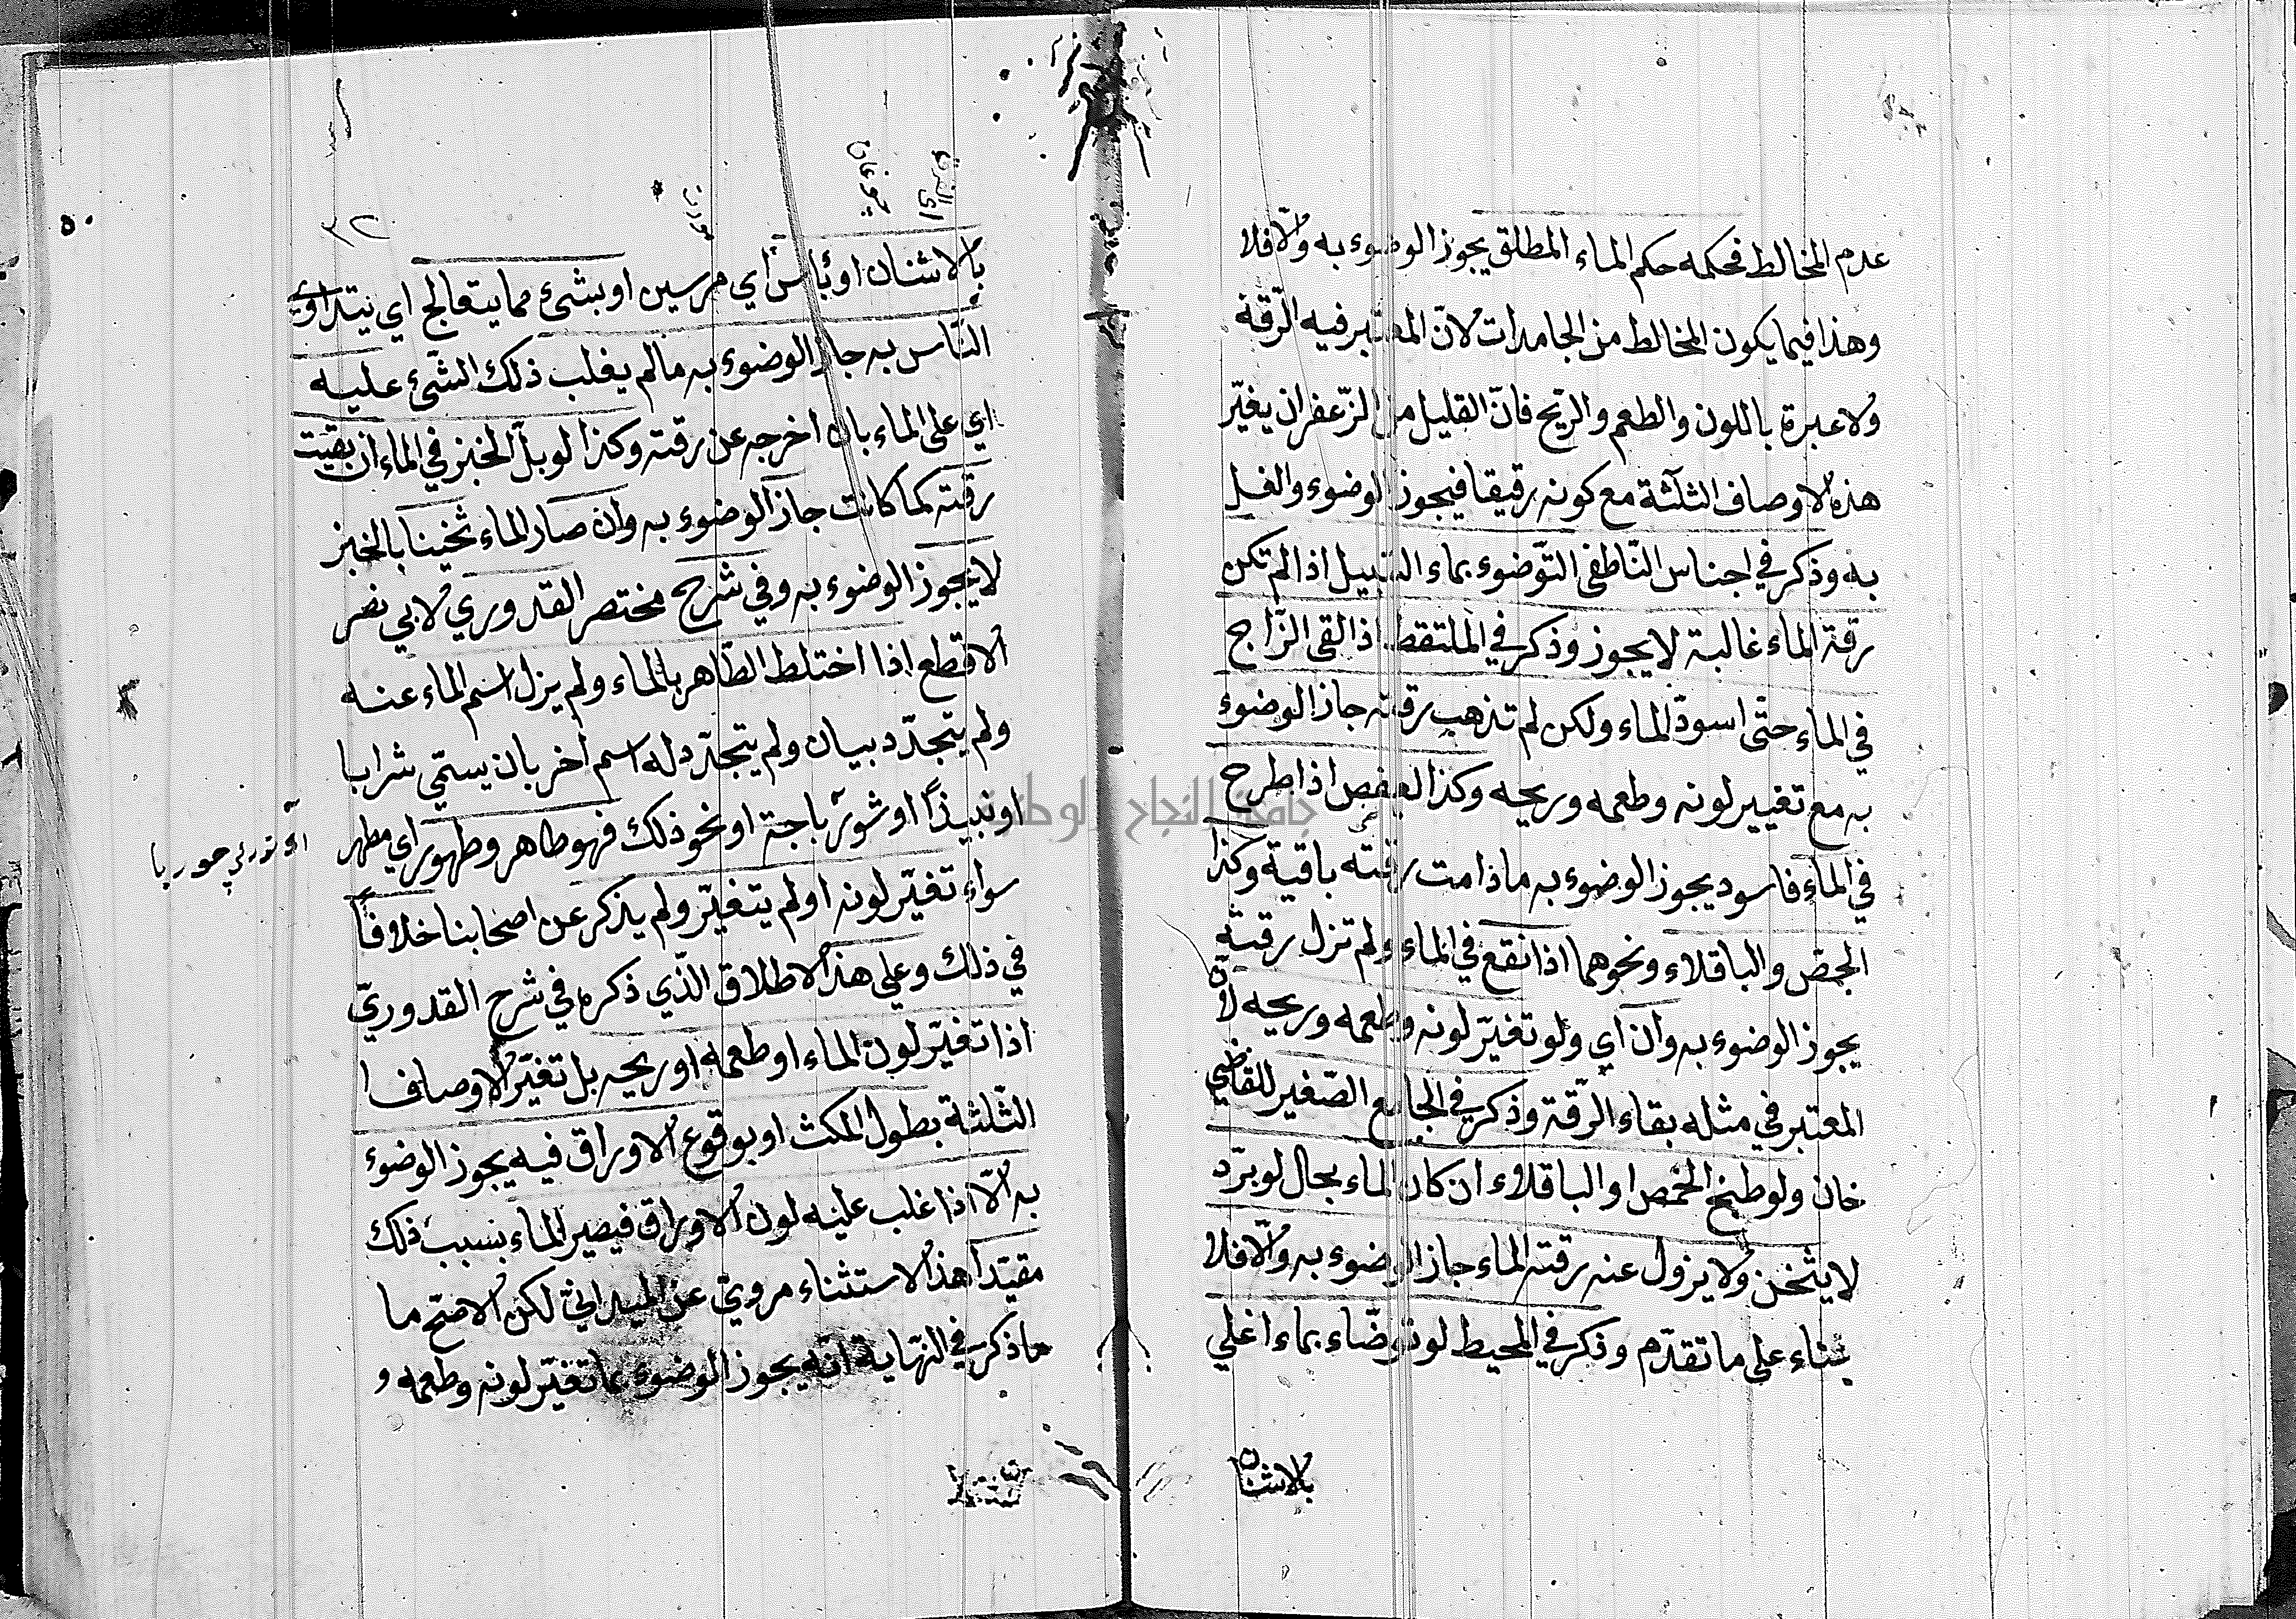 عدم المخالط فحكمه حكم الماء المطلق يجوز الوضوء به والّا فلا
وهذا فيما يكون المخالط من الجامدات لانّ المعتبر فيه الرّقة
ولا عبرة باللون والطعم والرّيح فانّ القليل من الزّعفران يغيّر
هذه الاوصاف الثلثة مع كونه رقيقا فيجوز الوضوء والغسل
به وذكر في اجناس النّاطفى التّوضوء بماء السّيل اذا لم تكن
رقة الماء غالبة لا يجوز وذكر في الملتقط اذا القى الزّاج
في الماء حتّى اسودّ الماء ولكن لم تذهب رقته جاز الوضوء
به مع تغيير لونه وطعمه وريحه وكذا العفص اذا طرح
في الماء فاسود يجوز الوضوء به ماذامت رقته باقية وكذا
الحمّص والباقلاء ونحوهما اذا نقع في الماء ولم تزل رقته
يجوز الوضوء به وان اي ولو تغيّر لونه وطعمه وريحه لانّ
المعتبر في مثله بقاء الرّقة وذكر في الجامع الصّغير للقاضي
خان ولو طبخ الحمّص او الباقلاء ان كان الماء بحال لو برّد
لا يثخن ولا يزول عنه رقته الماء جاز الوضوء به والّا فلا
بناء على ما تقدّم وذكر في المحيط لو توضّاء بماء اغلي
بالاشنان
٣٢
بالاشنان او بٔاس اي مرسين او بشئ مما يتعالج اي يتداوى
النّاس به جاز الوضوء به مالم يغلب ذلك الشّئ عليه
اي على الماء بان اخرجه عن رقته وكذا لو بلّ الخبز في الماء ان بقيت
رقته كما كانت جاز الوضوء به وان صار الماء ثخينا بالخبز
لا يجوز الوضوء به وفي شرح مختصر القدوري لابي نصر
الاقطع اذا اختلط الطّاهر بالماء ولم يزل اسم الماء عنه
ولم يتجدّد بيان ولم يتجدّد له اسم اخر بان يسمّي شرابا
او نبيذاً او شورباجة او نحو ذلك فهو طاهر وطهور اي مطهر
سواء تغيّر لونه او لم يتغيّر ولم يذكر عن اصحابنا خلافاً
في ذلك وعلى هذا الاطلاق الّذي ذكره في شرح القدوريّ
اذا تغيّر لون الماء او طعمه او ريحه بل تغيّر الاوصاف
الثّلثة بطول المكث او بوقوع الاوراق فيه يجوز الوضوء
به الّا اذا غلب عليه لون الاوراق فيصير الماء بسبب ذلك
مقيّدا هذا الاستثناء مرويّ عن الميدانيّ لكن الاصحّ ما
ماذكر في النّهاية انه يجوز الوضوء بما تغيّر لونه وطعمه و
جامعة النجاح الوطنية